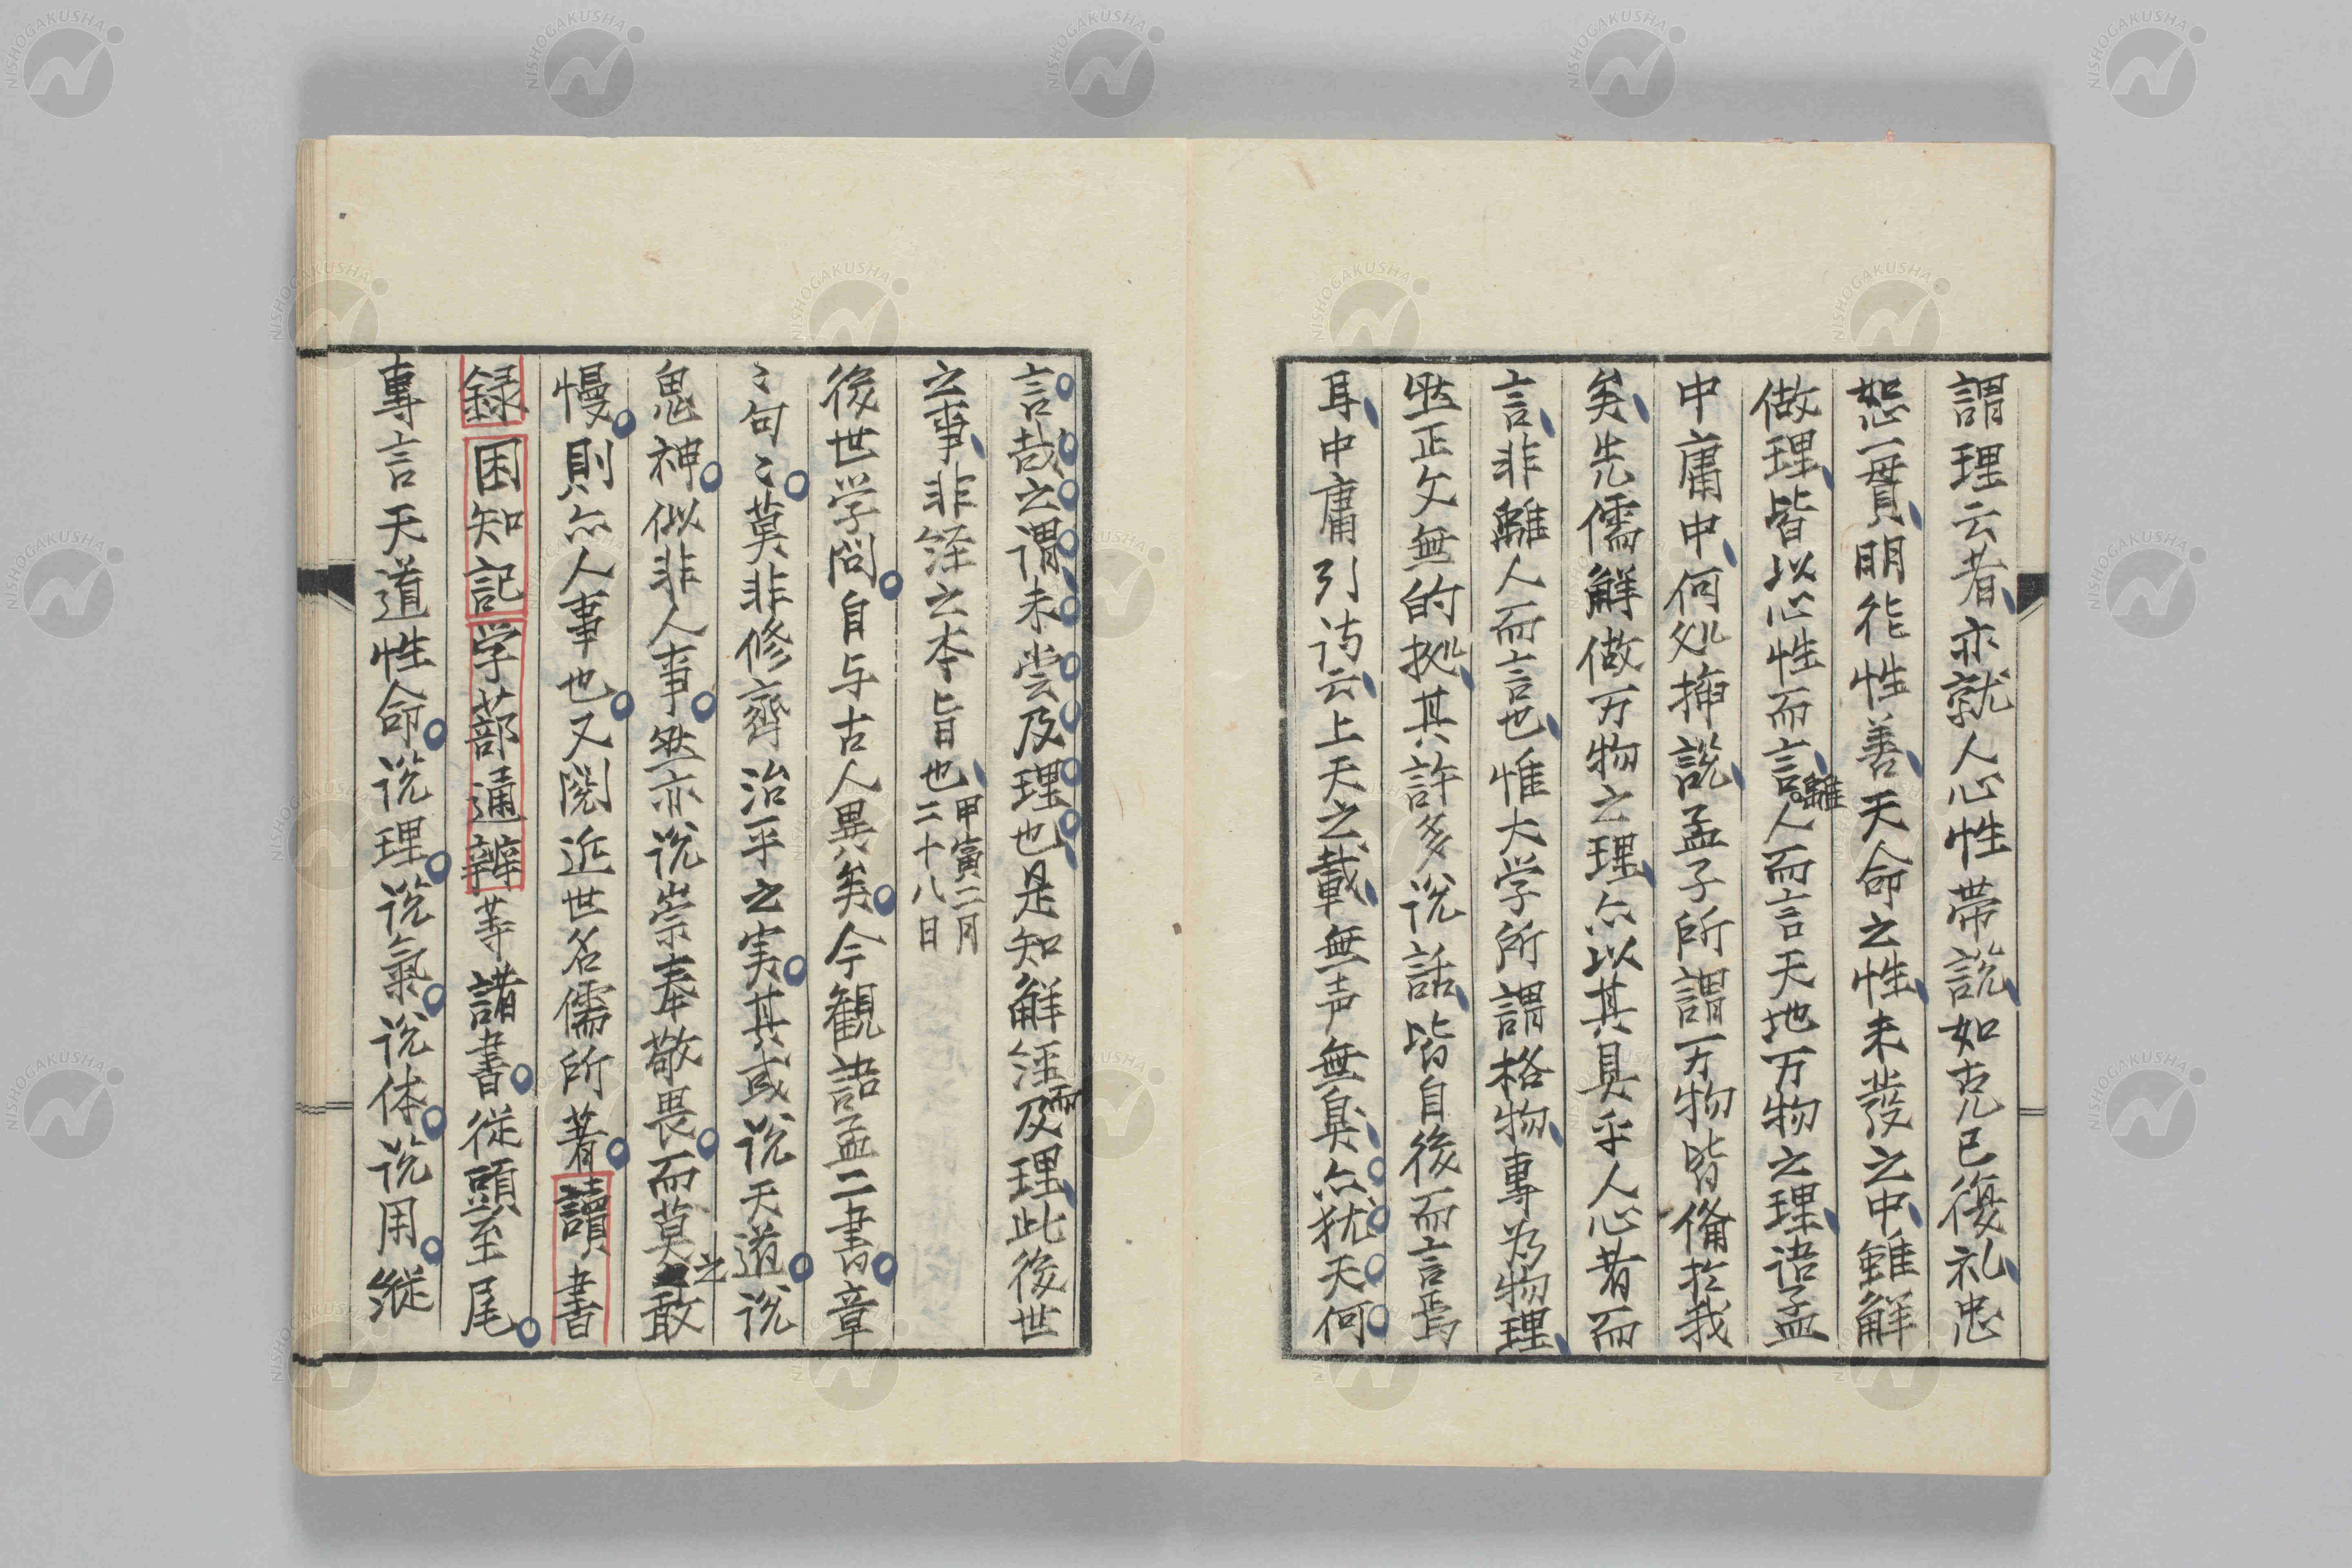 謂理云者亦就人心性帯説如克己復礼忠
恕一貫明徳性善天命之性未発之中雖解
做理皆以心性而言離人而言天地万物之理語孟
中庸中何処挿説孟子所謂万物皆備於我
矣先儒解做万物之理亦以其具乎人心者而
言非離人而言也惟大学所謂格物専為物理
然正文無的拠其許多说話皆自後而言焉
耳中庸引诗云上天之載無声無臭亦犹天何
言哉之謂未尝及理也是知解経而及理此後世
之事非経之本旨也甲寅二月
二十八日
後世学问自与古人異矣今観語孟二書章
〻句〻莫非修齊治平之実其或说天道说
鬼神似非人事然亦说崇奉敬畏而莫之敢
慢則亦人事也又閲近世名儒所著讀書
録困知記学蔀通辨等諸書從頭至尾
專言天道性命说理说氣说体说用縦
NISHOGAKUSHA